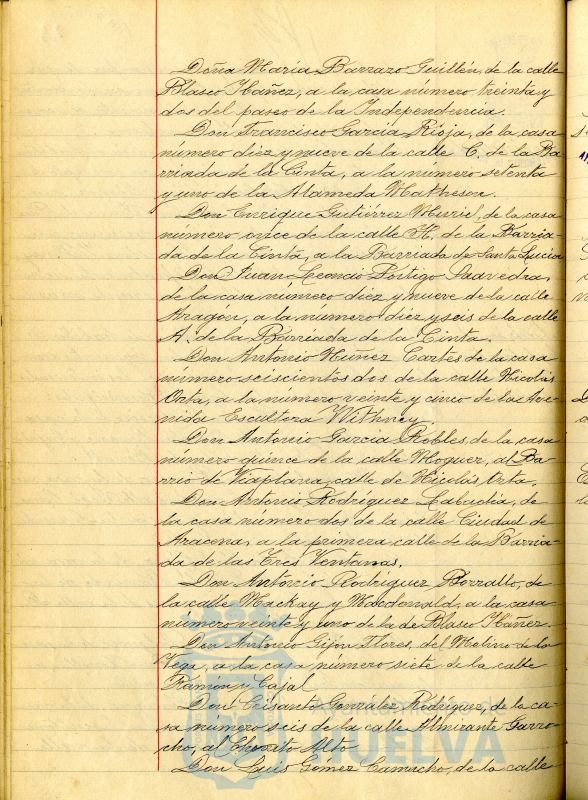 Doña María Barrazo Guillén, de la calle
Blasco Ibáñez, a la casa número treinta y
dos del paseo de la Independencia.
Don Francisco García Rioja, de la casa
número diez y nueve de la calle C. de la Ba-
rriada de la Cinta, a la número setenta
y uno de la Alameda Matheson.
Don Enrique Gutiérrez Muriel, de la casa
número once de la calle H. de la Barria-
da de la Cinta, a la Barriada de Santa Lucía
Don Juan Leoncio Postigo Saavedra,
de la casa número diez y nueve de la calle
Aragón, a la número diez y seis de la calle
A. de la Barriada de la Cinta.
Don Antonio Núñez Cartés de la casa
número seiscientos dos de la calle Nicolás
Orta, a la número veinte y cinco de la Ave-
nida Escultora Withney
Don Antonio García Robles, de la casa
número quince de la calle Moguer, al Ba-
rrio de Viaplana, calle de Nicolás Orta.
Don Antonio Rodríguez Labudia, de
la casa número dos de la calle Ciudad de
Aracena, a la primera calle de la Barria-
da de las Tres Ventanas.
Don Antonio Rodríguez Borrallo, de
la calle Mackay y Macdonald, a la casa
número veinte y uno de la de Blasco Ibáñez.
Don Antonio Gijón Flores, del Molino de la
Vega, a la casa número siete de la calle
Ramón y Cajal
Don Crisanto González Rodríguez, de la ca-
sa número seis de la calle Almirante Garro-
cho, al Chorito Alto
Don Luis Gómez Camacho, de la calle
HUELVA